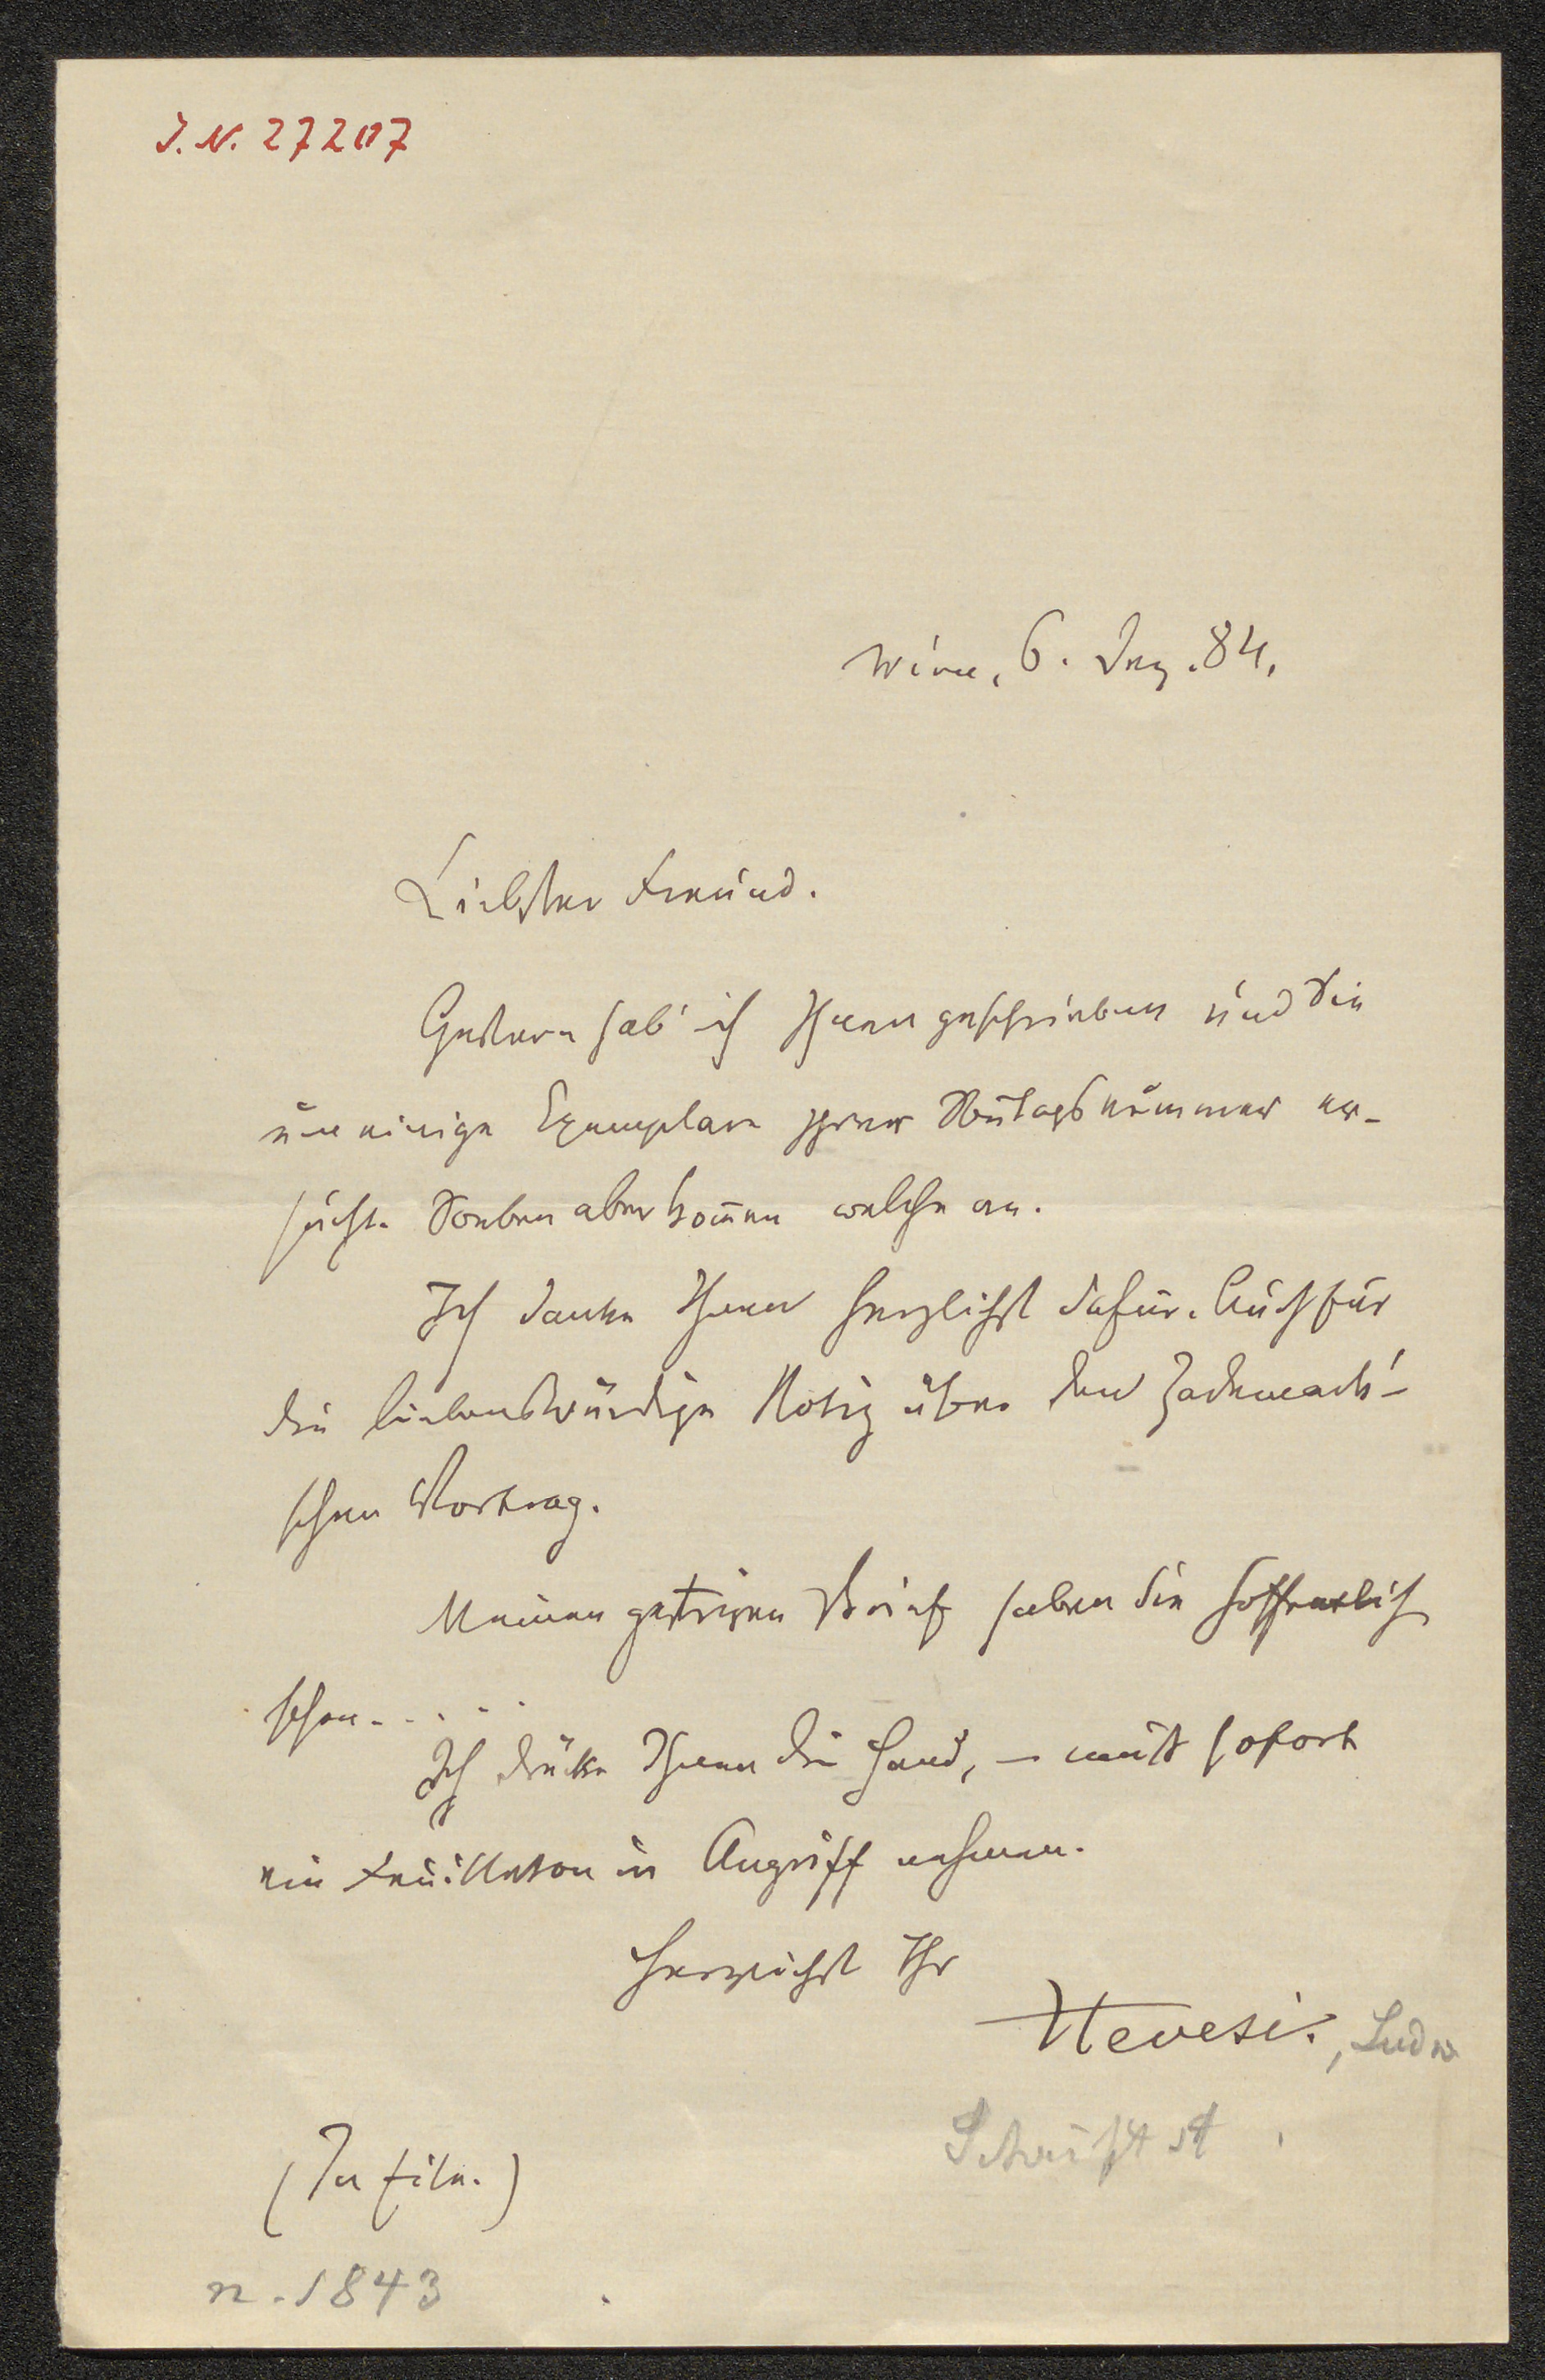 J. N. 27207
Wien, 6. Dez. 84.
Liebster Freund.
Gestern hab' ich Ihnen geschrieben und Sie
um einige Exemplare Ihrer Sonntagsnummer er-
sucht. Soeben aber kom̄en welche an.
Ich danke Ihnen herzlichst dafür. Auch für
die liebenswürdige Notiz über den
schen Vortrag.
Meinen gestrigen Brief haben Sie hoffentlich
schon. . . . .
Ich drücke Ihnen die Hand, – muß sofort
ein Feuilleton in Angriff nehmen.
Herzlichst Ihr
Hevesi. , Ludw
Schriftst
(In Eile.)
n. 1843